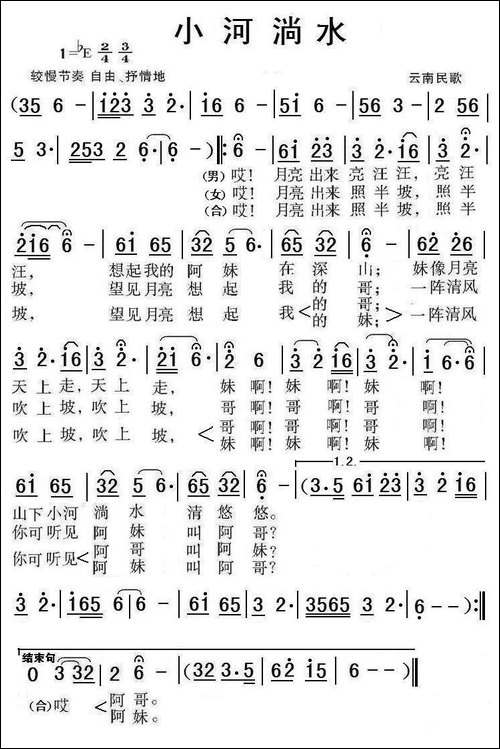 小河淌水
1=♭E 2/4 3/4
较慢节奏 自由、抒情地
云南民歌
(35 6 - | 1123 3 2· | 16 6 - | 51 6 - | 56 3 - | 2 56 |
5 3· | 253 2 6·6 | 6 - ):‖ 6 - | 61 23 | 3 2·16 | 6 - |
(男)哎！ 月亮出来 亮汪汪，亮汪
(女)哎！ 月亮出来 照半坡，照半
(合)哎！ 月亮出来 照半坡，照半
216 6 - | 61 65 | 32 5 6· | 65 32 | 6 - | 62 26 |
汪， 想起我的 阿妹 在深山； 妹像月亮
坡， 望见月亮 想起 我的哥； 一阵清风
坡， 望见月亮 想起 我<的哥；>一阵清风
的妹；
3 2·16 | 3 2· | 21 6 6· | 2 6 | 3 2 216 | 3 2· | 1 6 6· |
天上走，天上走， 妹啊！妹啊！妹啊！
吹上坡，吹上坡， 哥啊！哥啊！哥啊！
吹上坡，吹上坡，<哥啊！哥啊！哥啊！
妹啊！妹啊！妹啊！
1.2.
61 65 | 32 5 6· | 65 32 | 6 - | (3·5 61 23 | 3 2·16 |
山下小河 淌水 清悠悠。
你可听见 阿妹 叫阿哥？
你可听见<阿哥 叫阿妹？
阿妹 叫阿哥？
3 2· | 165 6 6 | 6 - | 61 65 | 3 2· | 3565 3 2· | 6 - - ):‖
结束句
0 3 32 | 2 6 - | (32 3·5 | 62 15 | 6 - - )‖
(合)哎 <阿哥。
阿妹。